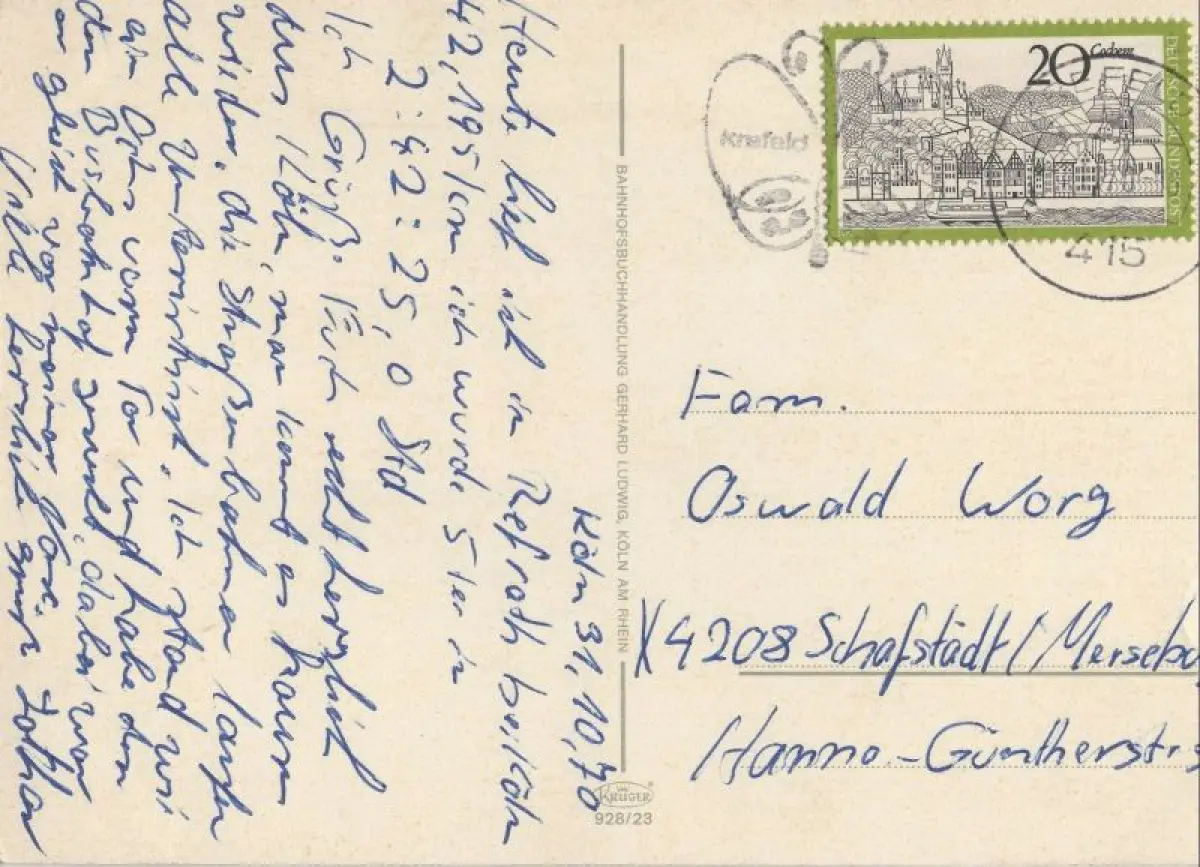 Köln 31.10.70
Heute lief ich in Refrath bei Köln
42,195 km ich wurde 5ter in
2:42:25,0 Std
Ich Grüße Euch recht herzlich
aus Köln, man kennt es kaum
wieder, die Straßenbahnen laufen
alle Unterirdisch. Ich stand wie
ein Ochs vorm Tor und habe den
den Busbahnhof gesucht, dabei war
er gleich vor meiner Nase.
Viele herzliche Grüße Lothar
BAHNHOFSBUCHHANDLUNG GERHARD LUDWIG, KÖLN AM RHEIN
KRÜGER
928/23
Krefeld
20 Cochem
DEUTSCHE BUNDESPOST
415
Fam.
Oswald Worg
X4208 Schafstädt/Mersebu
Hanno-Güntherstr.